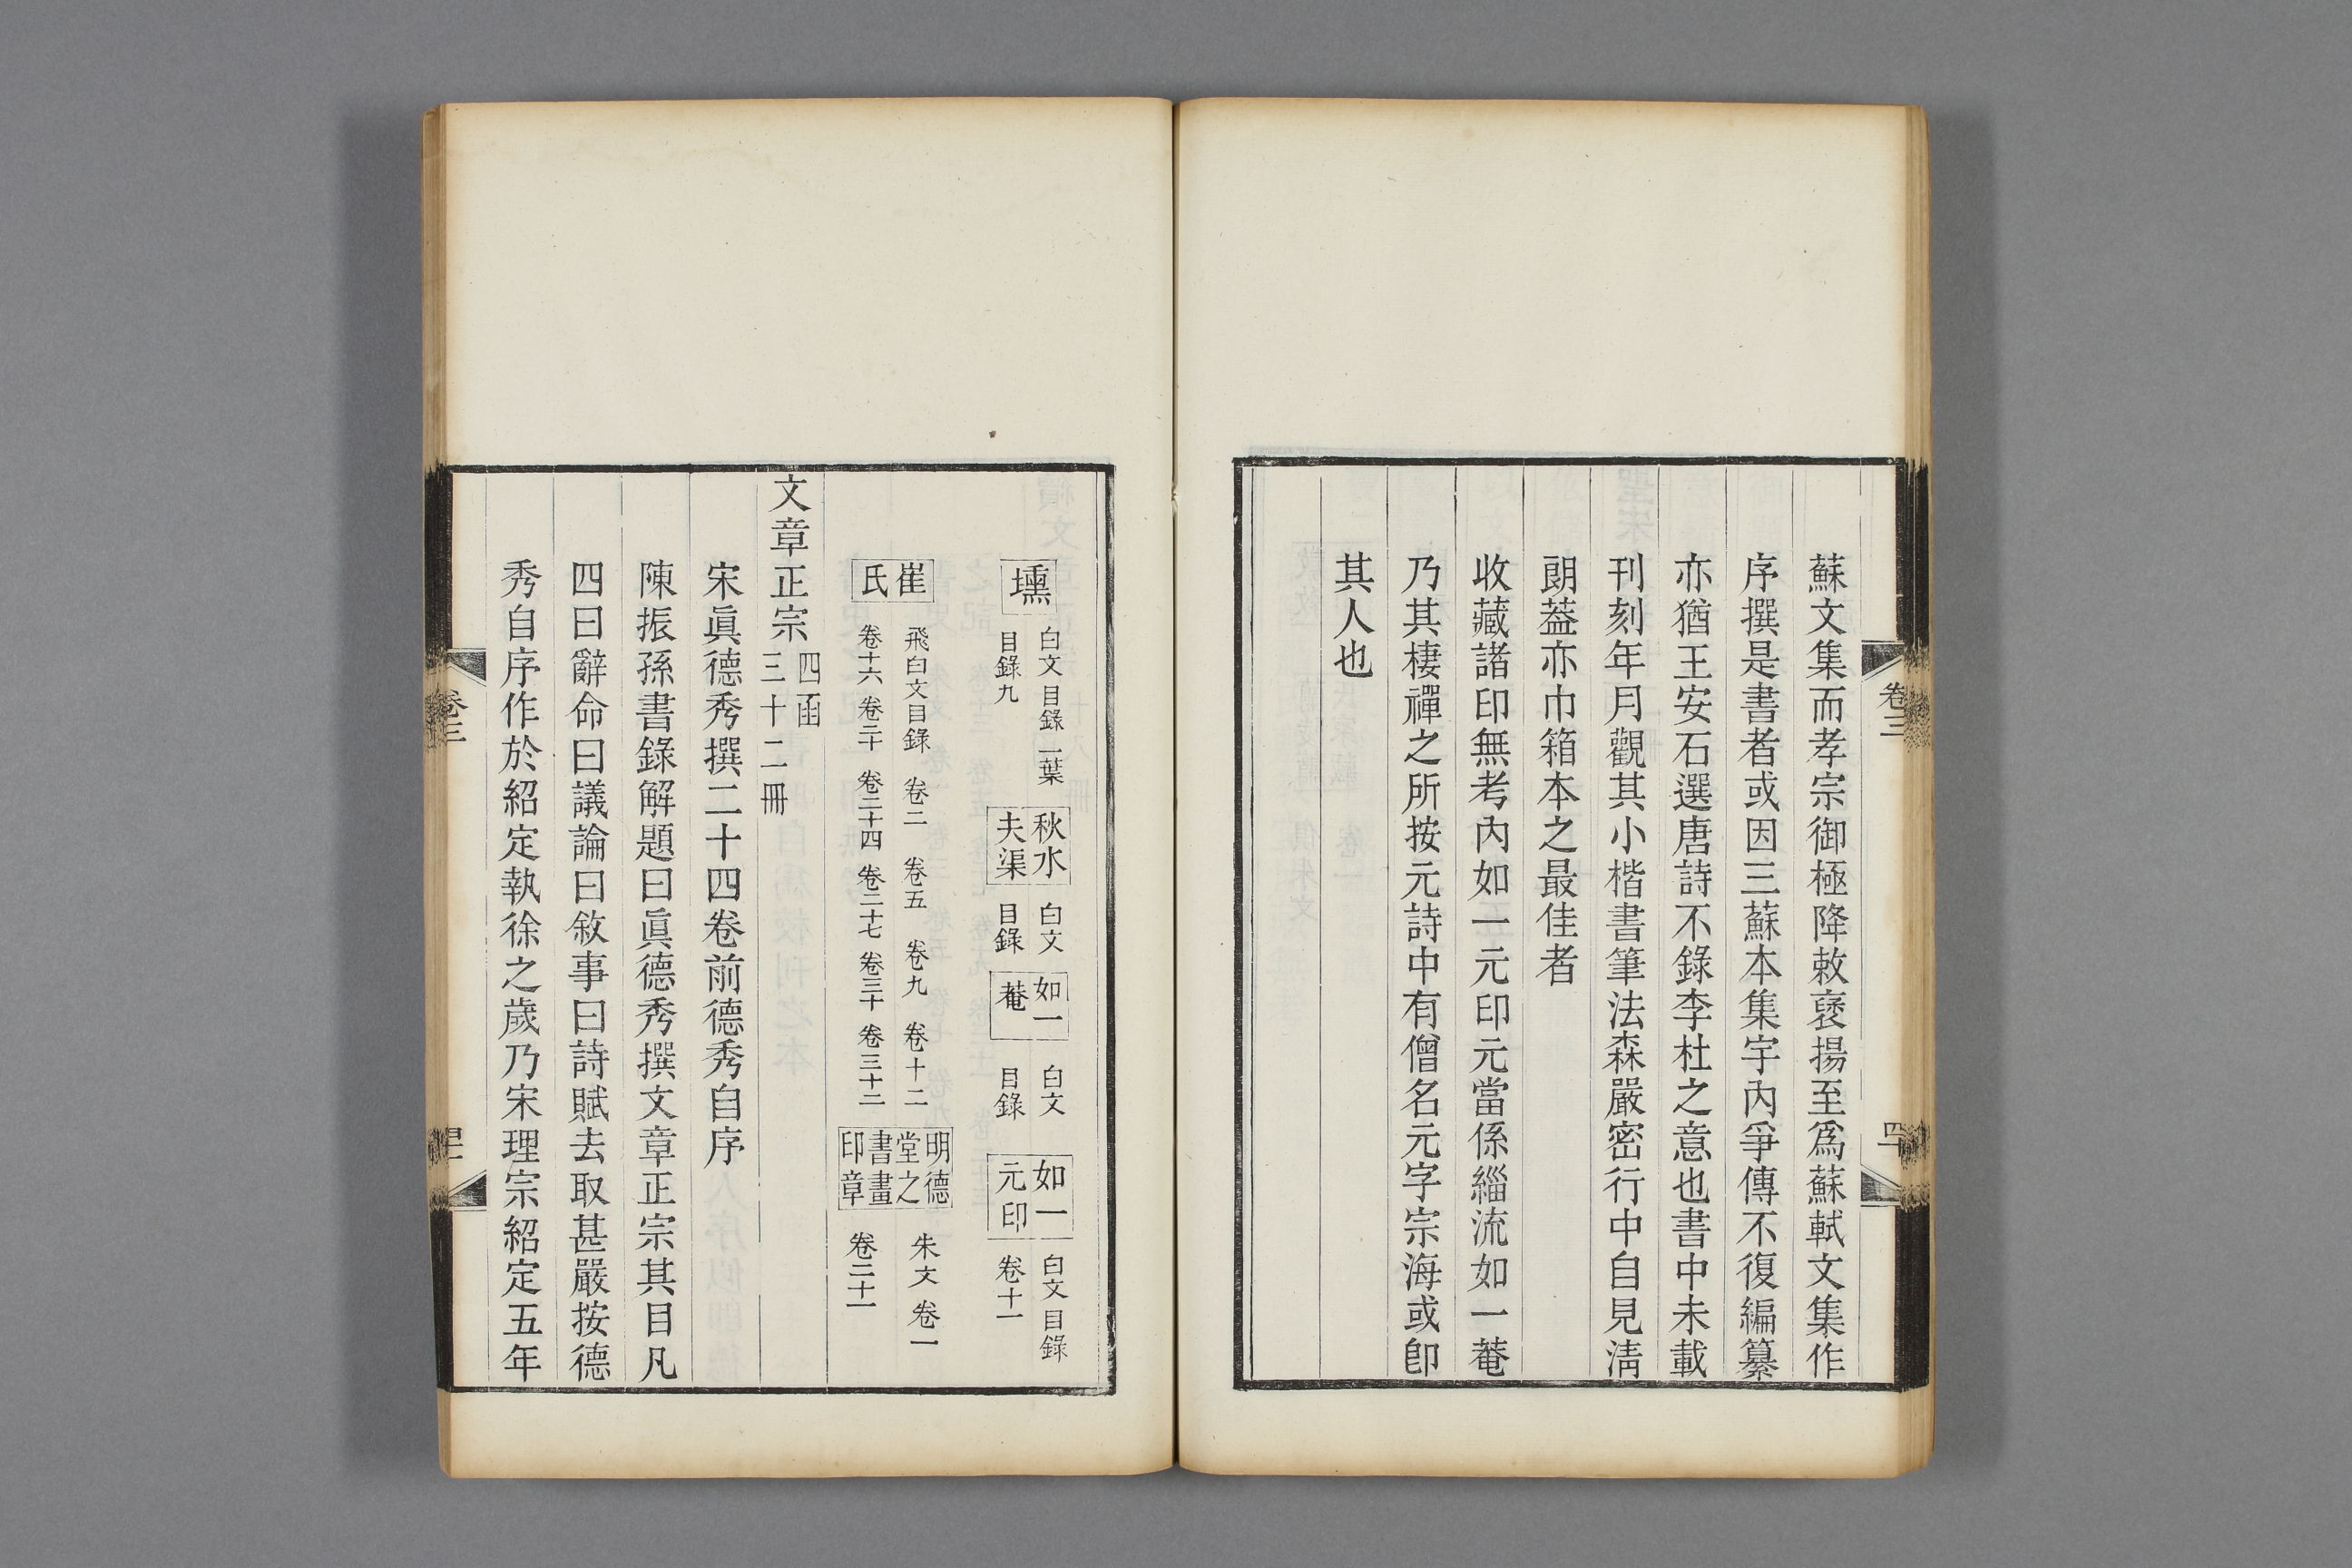 蘇文集而孝宗御極降敕襃揚至爲蘇軾文集作
序撰是書者或因三蘇本集宇內爭傳不復編纂
亦猶王安石選唐詩不錄李杜之意也書中未載
刊刻年月觀其小楷書筆法森嚴密行中自見淸
朗葢亦巾箱本之最佳者
收藏諸印無考內如一元印元當係緇流如一菴
乃其棲禪之所按元詩中有僧名元字宗海或卽
其人也
卷三
壎
白文 目錄 二葉
目錄九
秋水
夫渠
白文
目錄
如一
菴
白文
目錄
如一
元印
白文 目錄
卷十一
崔
氏
飛白文目錄 卷二 卷五 卷九 卷十二
卷十六 卷二十 卷二十四 卷二十七 卷三十 卷三十二
明德
堂之
書畫
印章
朱文 卷一
卷二十一
文章正宗
四函
三十二冊
宋眞德秀撰二十四卷前德秀自序
陳振孫書錄解題曰眞德秀撰文章正宗其目凡
四曰辭命曰議論曰敘事曰詩賦去取甚嚴按德
秀自序作於紹定執徐之歲乃宋理宗紹定五年
卷三